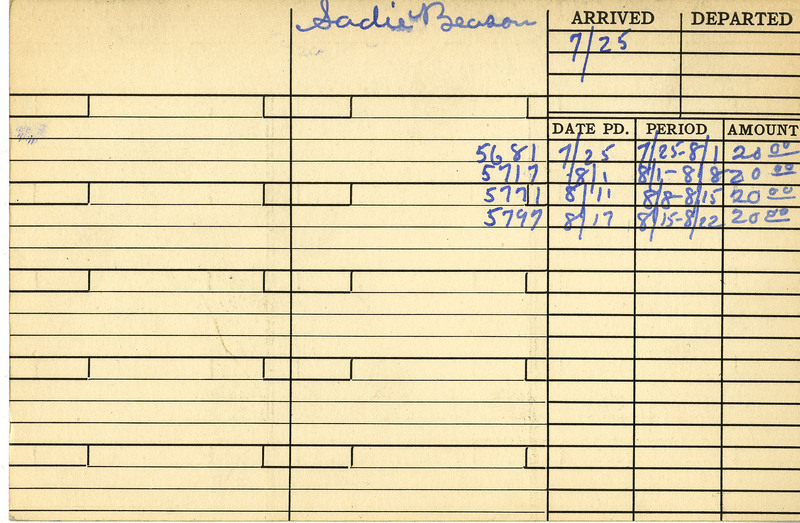 Sadie Beason
ARRIVED DEPARTED
7/25
DATE PD. PERIOD AMOUNT
5681 7/25 7/25-8/1 20 00
5717 8/1 8/1-8/8 20 00
5771 8/11 8/8-8/15 20 00
5797 8/17 8/15-8/22 20 00